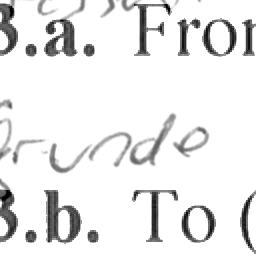 3.a. From
Grunde
3.b. To (